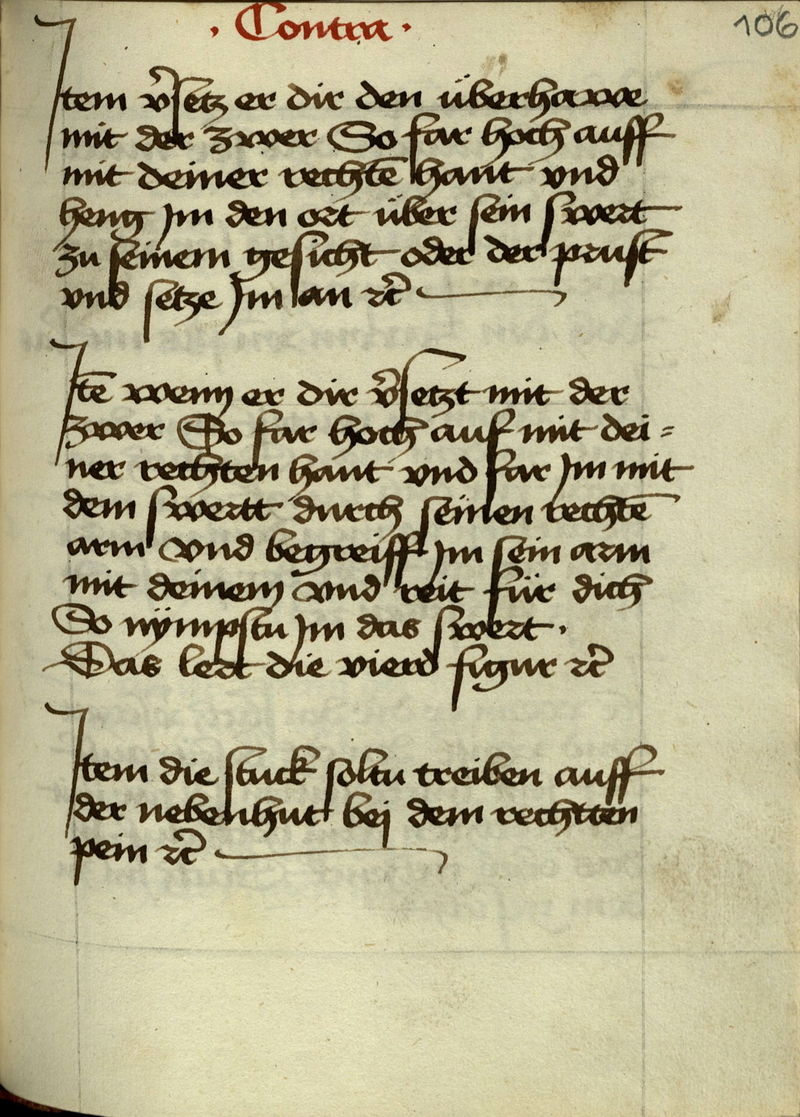 106
· Contra ·
Item v̄setz er dir den überhawe
mit der zwer So far hoch auff
mit deiner rechtē hant vnd
heng Jm den ort über sein swert
zu seinem gesicht oder der prust
vnd setze Jm an ꝛc̄
Jtē wenn er dir v̄setzt mit der
zwer So far hoch auf mit dei=
ner rechten hant vnd far Jm mit
dem swertt durch seinen rechtē
arm vnd begreiff Jm sein arm
mit deinem vnd reit für dich
So nÿmpstu Jm das swert ·
Das lert die vierd figur ꝛc̄
Item die stuck soltu treiben auff
der nebenhut bej dem rechtten
pein ꝛc̄